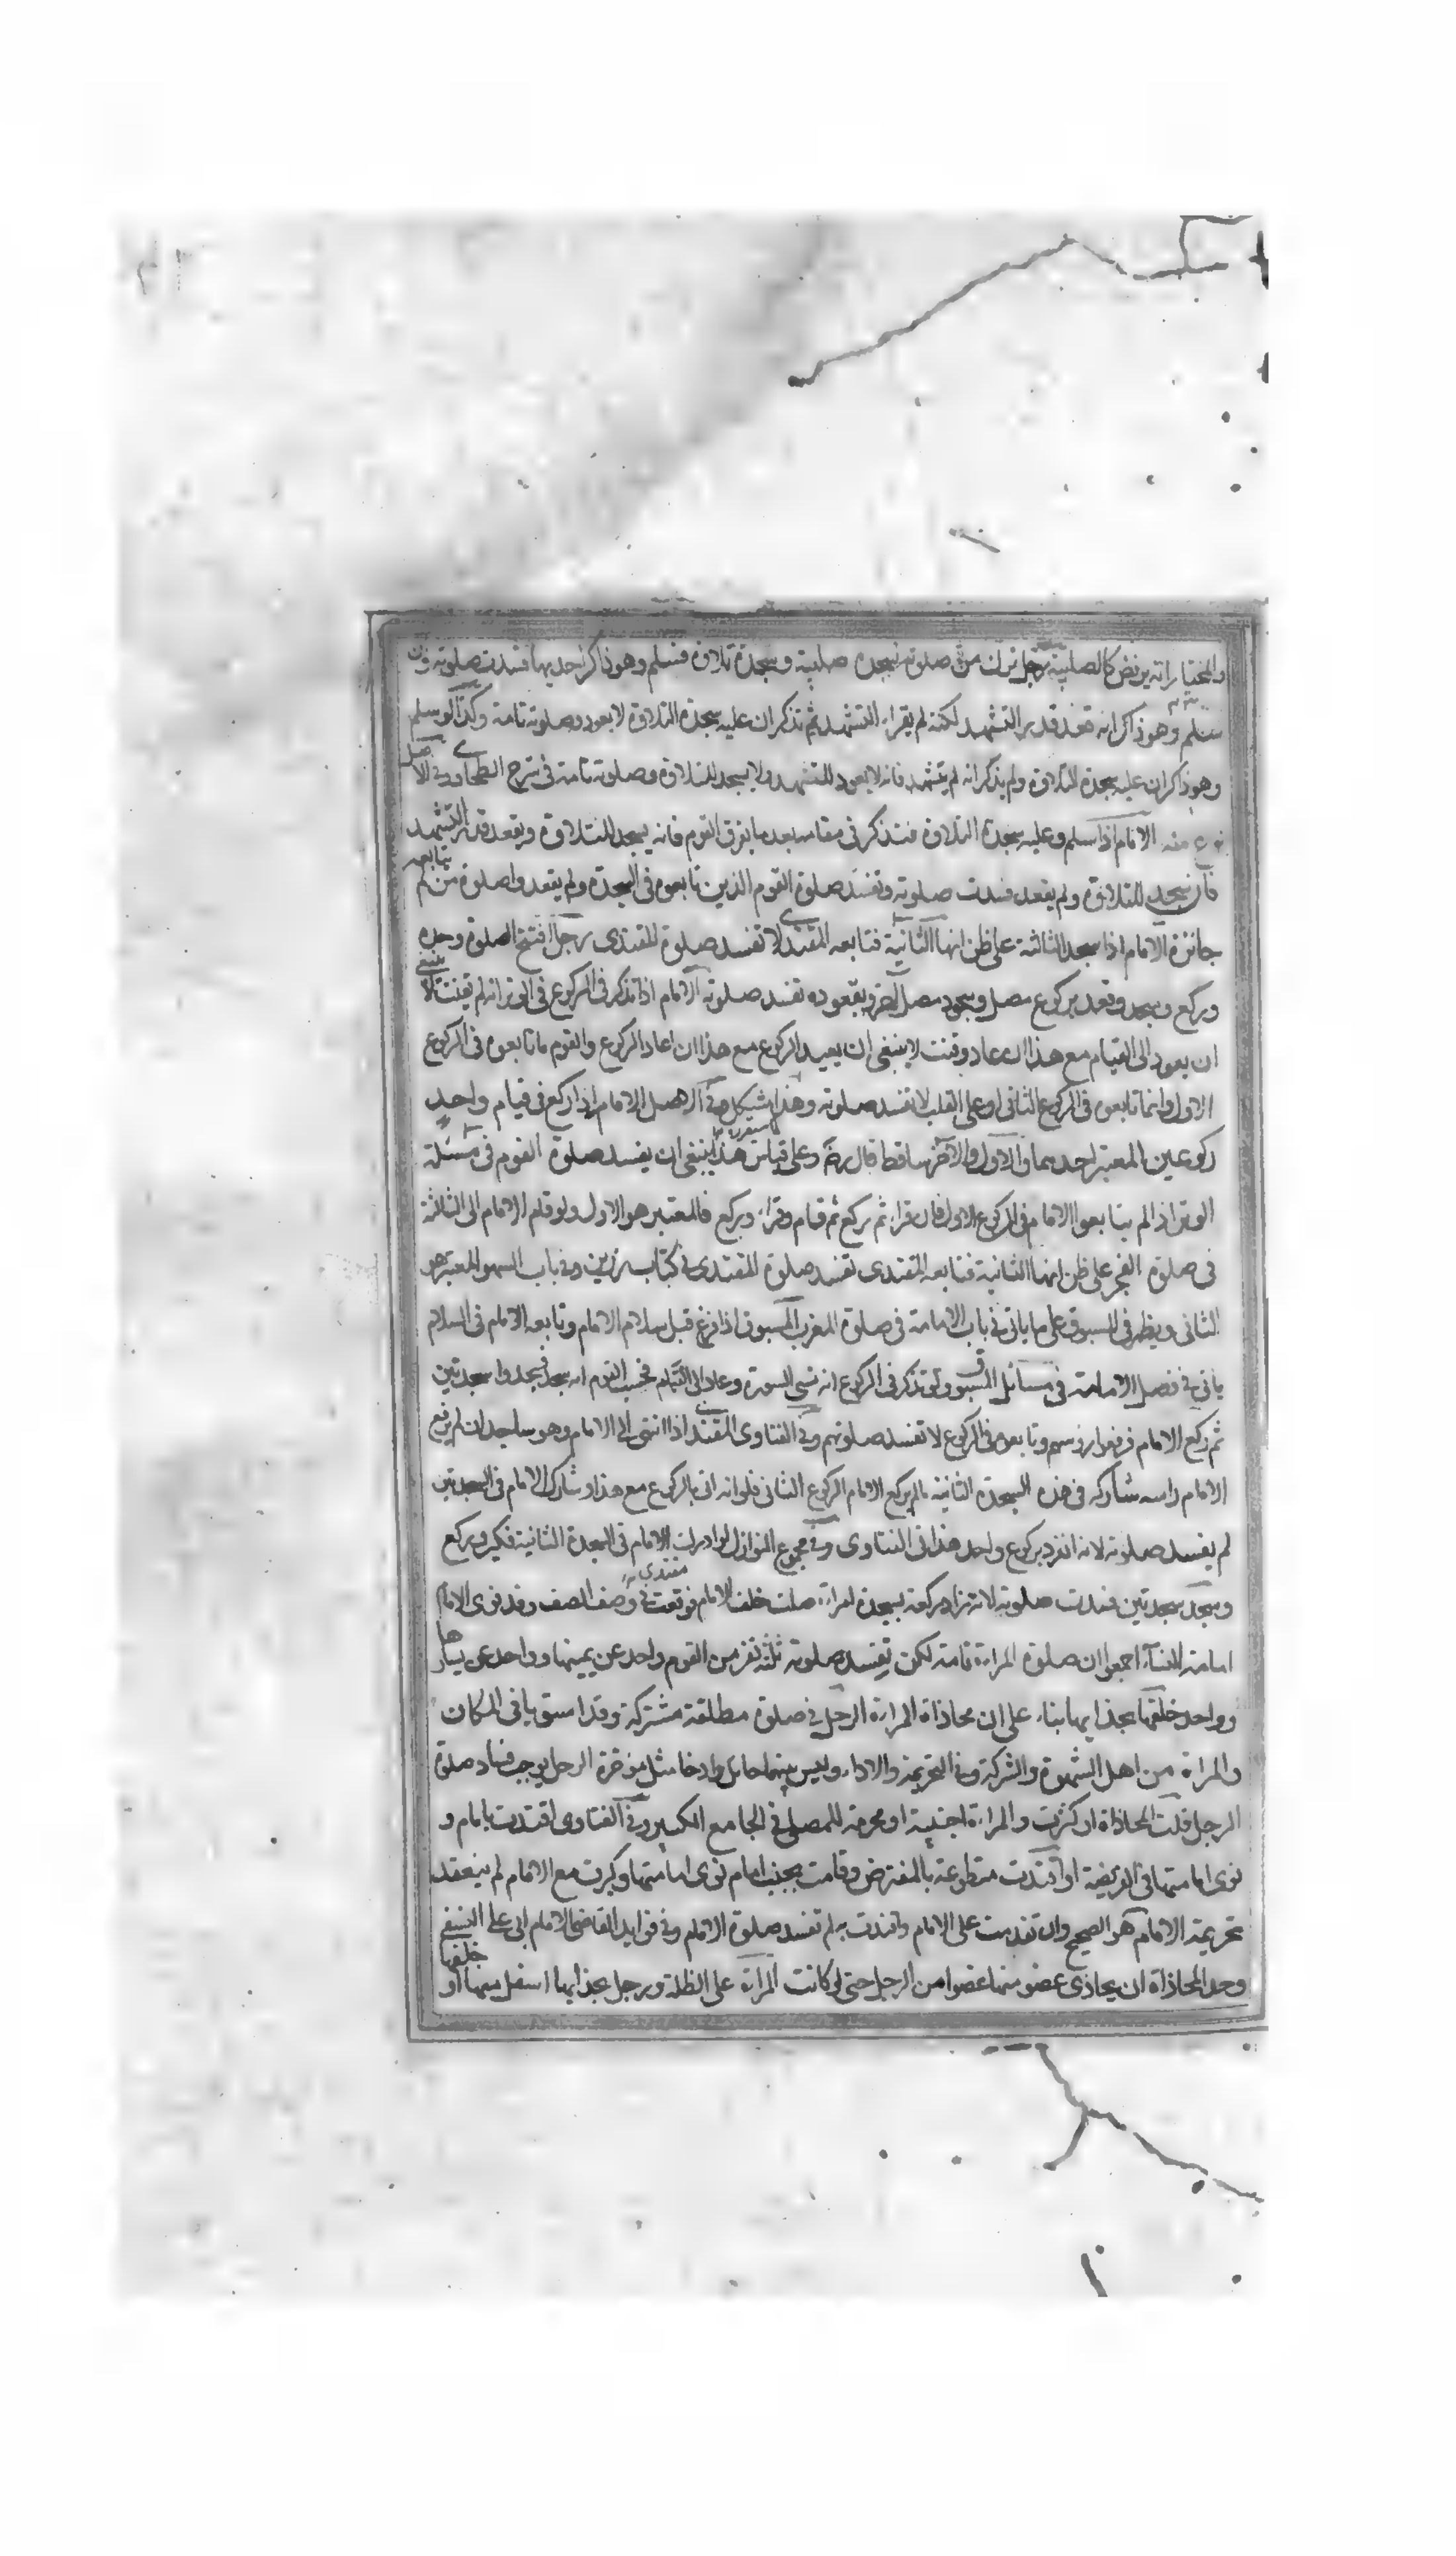 والمختار انه يرتفض كالصلبية رجل ترك من صلوته سجدة صلبية وسجدة تلاوة فسلم وهو ذاكر احديهما فسدت صلوته وان
سلم وهو ذاكر انه قعد قدر التشهد لكنه لم يقراء التشهد ثم تذكر ان عليه سجدة التلاوة لا يعود وصلوته تامة وكذا لو سلم
وهو ذاكر ان عليه سجدة التلاوة ولم يذكر انه لم يتشهد فانه لا يعود للتشهد ولا يسجد للتلاوة وصلوته تامة في شرح الطحاوي وفي الاصل
نوع منه الامام اذا سلم وعليه سجدة التلاوة فتذكر في مقامه بعد ما تفرق القوم فانه يسجد للتلاوة ويقعد قدر التشهد
فان سجد للتلاوة ولم يقعد فسدت صلوته وتفسد صلوة القوم الذين تابعوه في السجدة ولم يقعدوا صلوة من لم يتابعه
جائزة الامام اذا سجد الثالثة على ظن انها الثانية فتابعه المقتدي لا تفسد صلوة المقتدى رجل افتتح الصلوة وحده
وركع وسجد وقعد بركوع مصل وسجود مصل اخر وبقعوده تفسد صلوته الامام اذا تذكر في الركوع في الوتر انه لم يقنت لا ينبغي
ان يعود الى القيام مع هذا ان عاد وقنت لا ينبغي ان يعيد الركوع مع هذا ان اعاد الركوع والقوم ما تابعوه في الركوع
الاول وانما تابعوه في الركوع الثاني او على القلب لا تفسد صلوته وهذا يشكل وفي الاصل الامام اذا ركع في قيام واحد
ركوعين المعتبر احدهما والاول والآخر ساقط قال رضه وعلى قياس هذا ينبغي ان يفسد صلوة القوم في مسئلة
الوتر اذا لم يتابعوا الامام في الركوع الاول فان قراء ثم ركع ثم قام وقراء وركع فالمعتبر هو الاول ولو قام الامام الى الثالثة
في صلوة الفجر على ظن انها الثانية فتابعه المقتدى تفسد صلوة المقتدى في كتاب رزين وفي باب السهو المعتبر هو
الثاني ويظهر في المسبوق على ما ياتي في باب الامامة في صلوة المغرب المسبوق اذا فرغ قبل سلام الامام وتابعه الامام في السلام
ياتي في فصل الامامة في مسائل المسبوق ولو تذكر في الركوع انه نسي السورة وعاد الى القيام فحسب القوم انه سجد فسجدوا سجدتين
ثم ركع الامام فرفعوا رؤسهم وتابعوه في الركوع لا تفسد صلوتهم وفي الفتاوى المقتدي اذا انتهى الى الامام وهو ساجد ان لم يرفع
الامام راسه شاركه في هذه السجدة الثانية ما لم يركع الامام الركوع الثاني فلو انه اتى بالركوع مع هذا وشارك الامام في السجدتين
لم يفسد صلوته لانه انفرد بركوع واحد هذا في الفتاوى وفي مجموع النوازل لو ادرك الامام في السجدة الثانية فكبر وركع
وسجد سجدتين فسدت صلوته لانه زاد ركعة بسجدة امراءة صلت خلف الامام فوقعت في وصف الصف وقد نوى الامام
امامة النساء اجمعوا ان صلوة المراءة تامة لكن تفسد صلوته ثلثه نفر من القوم واحد عن يمينها وواحد عن يسارها
وواحد خلفها بحذايها بناء على ان محاذاة المراءة الرجل في صلوة مطلقة مشتركة وقد استويا في المكان
والمراة من اهل الشهوة والشركة وفي التحريمة والاداء وليس بينهما حايل وادنا مثل مؤخرة الرحل يوجب فساد صلوة
الرجل قلت المحاذاة او كثرت والمراءة اجنبية او محرمة للمصلي في الجامع الكبير وفي الفتاوى اقتدت بامام و
نوى امامتها في الفريضة او اقتدت متطوعة بالمفترض وقامت بجنب امام نوى امامتها وكبرت مع الامام لم ينعقد
تحريمة الامام هو الصحيح وان تقدمت على الامام واقتدت به لم تفسد صلوة الامام وفي فوايد القاضي الامام ابي علي النسفي
وحد المحاذاة ان يحاذى عضو منها عضوا من الرجل حتى لو كانت المراة على الظلة ورجل بحذايها اسفل منها او خلفها